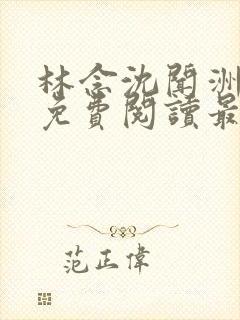 林念沈聞洲
免費閱讀最
范正偉